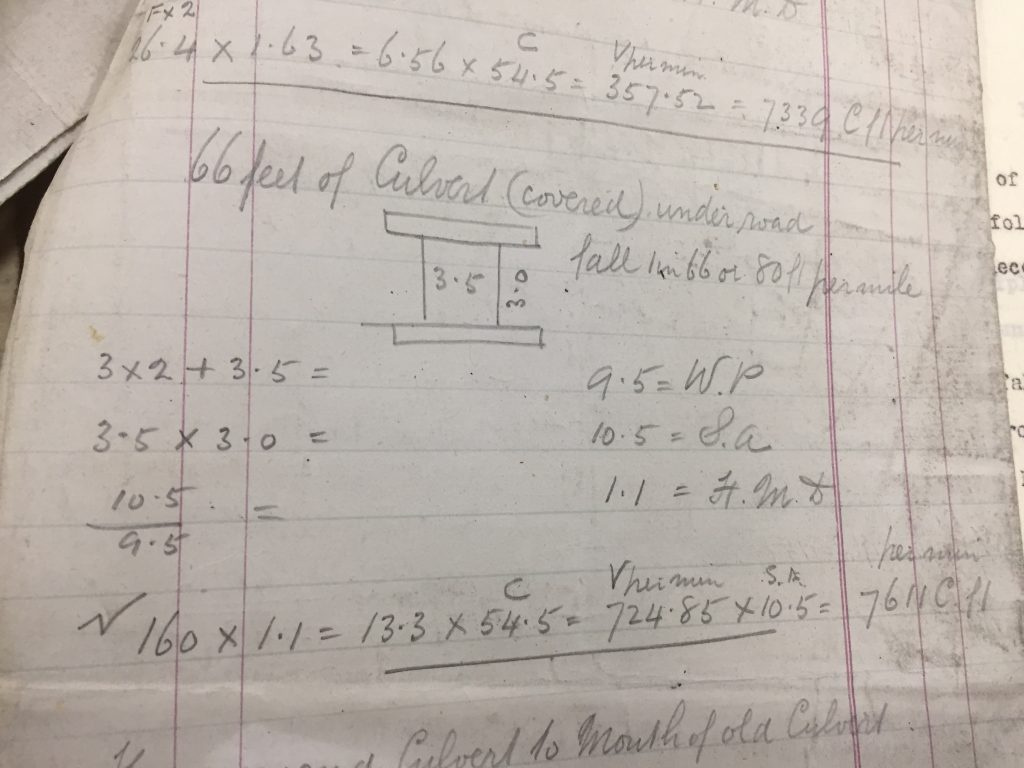 M. D
F x 2
26.4 x 1.63 = 6.56 x 54.5 = 357.52 = 7339 C ft per min
C
V per min
66 feet of Culvert (covered) under road
fall 1 in 66 or 80 ft per mile
3.5
3.0
3 x 2 + 3.5 = 9.5 = W.P
3.5 x 3.0 = 10.5 = S.a
10.5
9.5
= 1.1 = H.M.D
C
V per min
S.A
per min
√160 x 1.1 = 13.3 x 54.5 = 724.85 x 10.5 = 7611 C.ft
Culvert to Mouth of old Culvert
of
fol